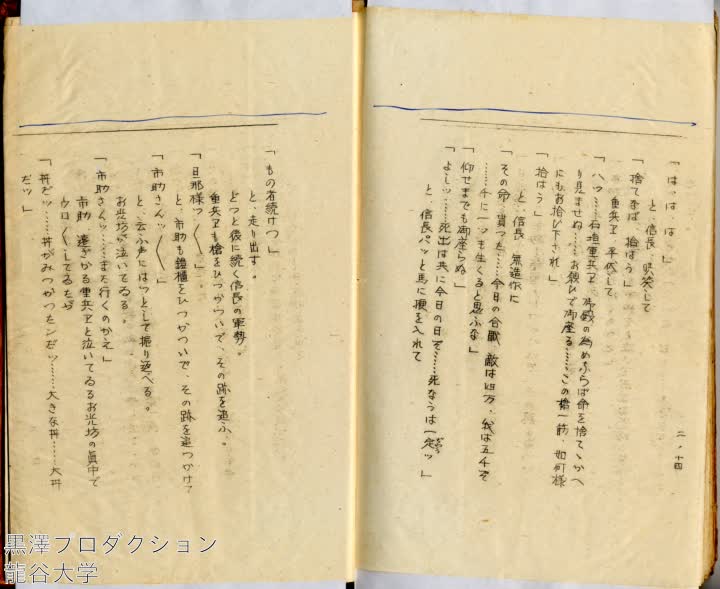 二ノ十四
「はっ、はっは」
と、信長 哄笑して
「捨てなば、拾はう」
重兵ヱ 平伏して
「ハッ……石垣重兵ヱ、御殿の為めならば命を捨てゝかへ
り見ませぬ……お救ひで御座る……この槍一筋、如何様
にもお拾ひ下され」
「拾はう」
と、信長 無造作に
「その命、貰つた……今日の合戦、敵は四万、我は五千ぞ
……千に一ツも生くると思ふな」
「仰せまでも御座らぬ」
「よしッ……死出は共に今日の日ぞ……死なうは一定ッ」
と、信長パッと馬に腰を入れて
「もの者続けつ」
と、走り出す。
どつと後に続く信長の軍勢。
重兵ヱも槍をひつかついで、その跡を追ふ。
「旦那様つ〱」
と、市助も鎧櫃をひつかついで、その跡を追つかけて
「市助さんッ〱」
と、云ふ声にはつとして振り返へる。
お光坊が泣いてゐる。
「市助さんッ……また行くのかえ」
市助 遠ざかる重兵ヱと泣いてゐるお光坊の真中で
ウロ〱してゐたが
「丼だッ……丼がみつかつたンだッ……大きな丼……大丼
だッ」
黒澤プロダクション
龍谷大学